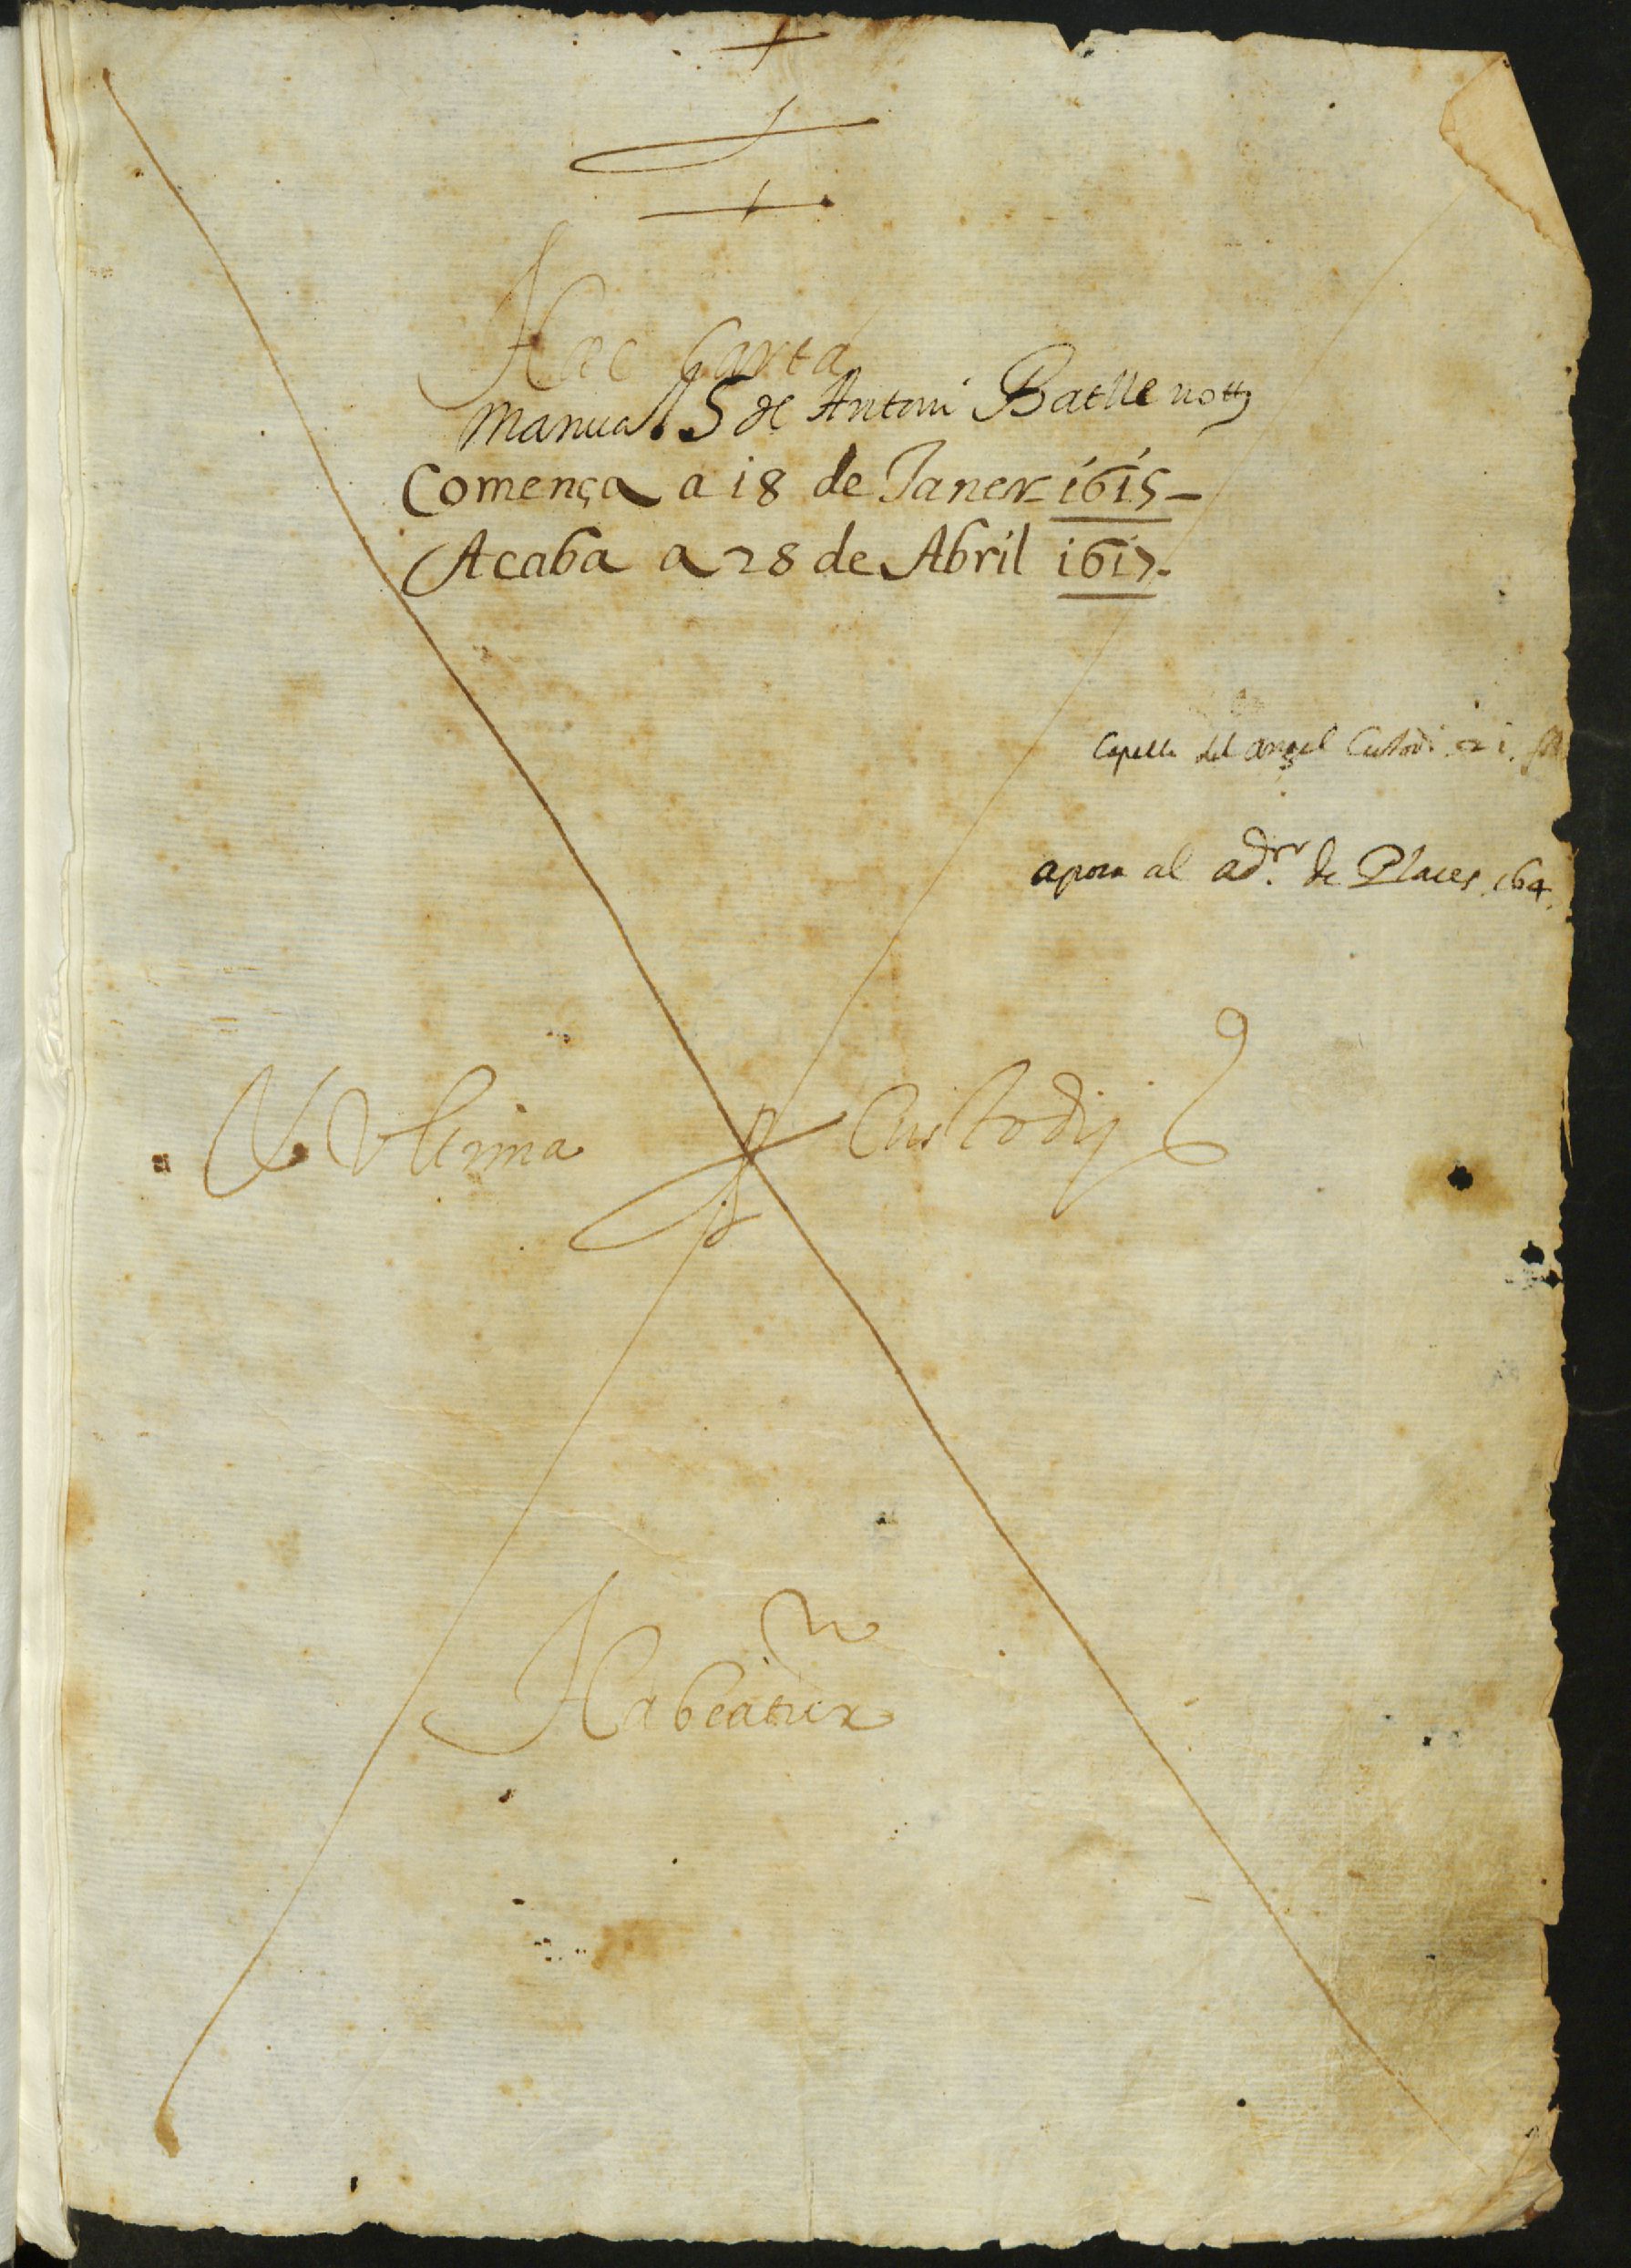 Hæc Carta
Manual 5 de Antoni Batlle nott
Comença a 18 de Janer 1615 -
Acaba a 28 de Abril 1617.
Capella del Angel Custodi
al adr. de Places 164.
Vltima p Custodij
Habeatur